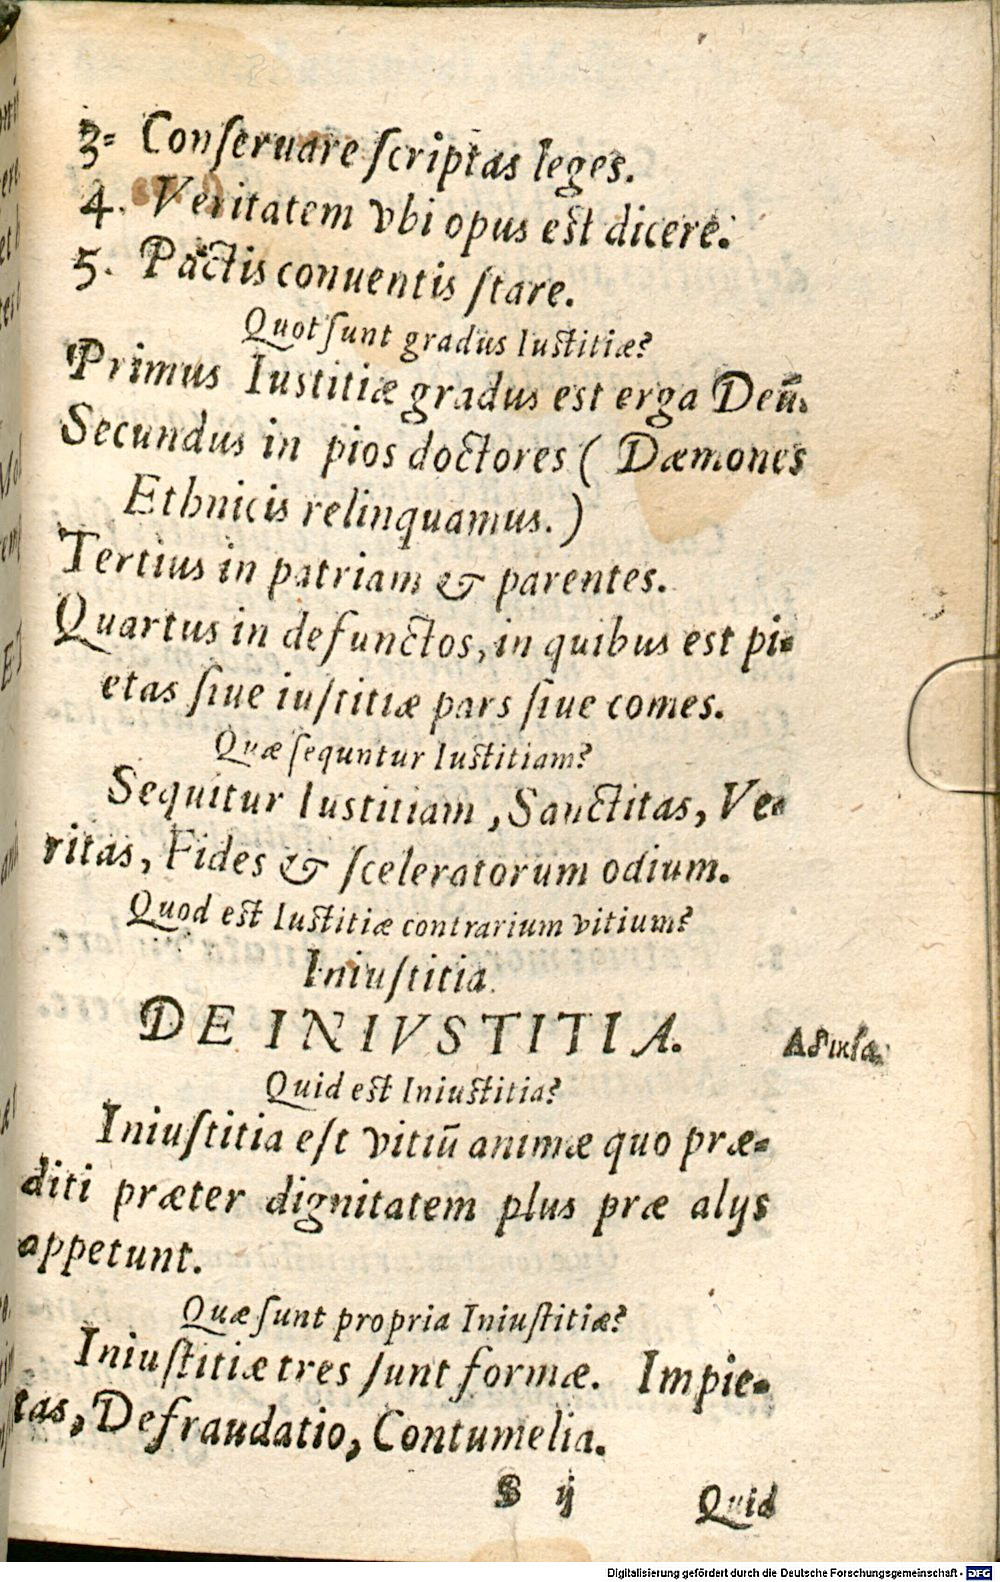 3. Conſeruare ſcriptas leges.
4. Veritatem vbi opus est dicere.
5. Pactis conuentis ſtare.
Quot ſunt gradus Iustitiæ?
Primus Iustitiæ gradus est erga Deū.
Secundus in pios doctores ( Dæmones
Ethnicis relinquamus. )
Tertius in patriam & parentes.
Quartus in defunctos, in quibus est pi-
etas ſiue iuſtitiæ pars ſiue comes.
Quæ ſequntur Iustitiam?
Sequitur Iustitiam, Sanctitas, Ve-
ritas, Fides & ſceleratorum odium.
Quod est Iustitiæ contrarium vitium?
Iniuſtitia.
DE INIVSTITIA.
Αδικία.
Quid est Iniustitia?
Iniuſtitia eſt vitiū animæ quo præ-
diti præter dignitatem plus præ alijs
appetunt.
Quæ ſunt propria Iniuſtitiæ?
Iniuſtitiæ tres ſunt formæ. Impie-
tas, Defraudatio, Contumelia.
S ij Quid
Digitalisierung gefördert durch die Deutsche Forschungsgemeinschaft - DFG